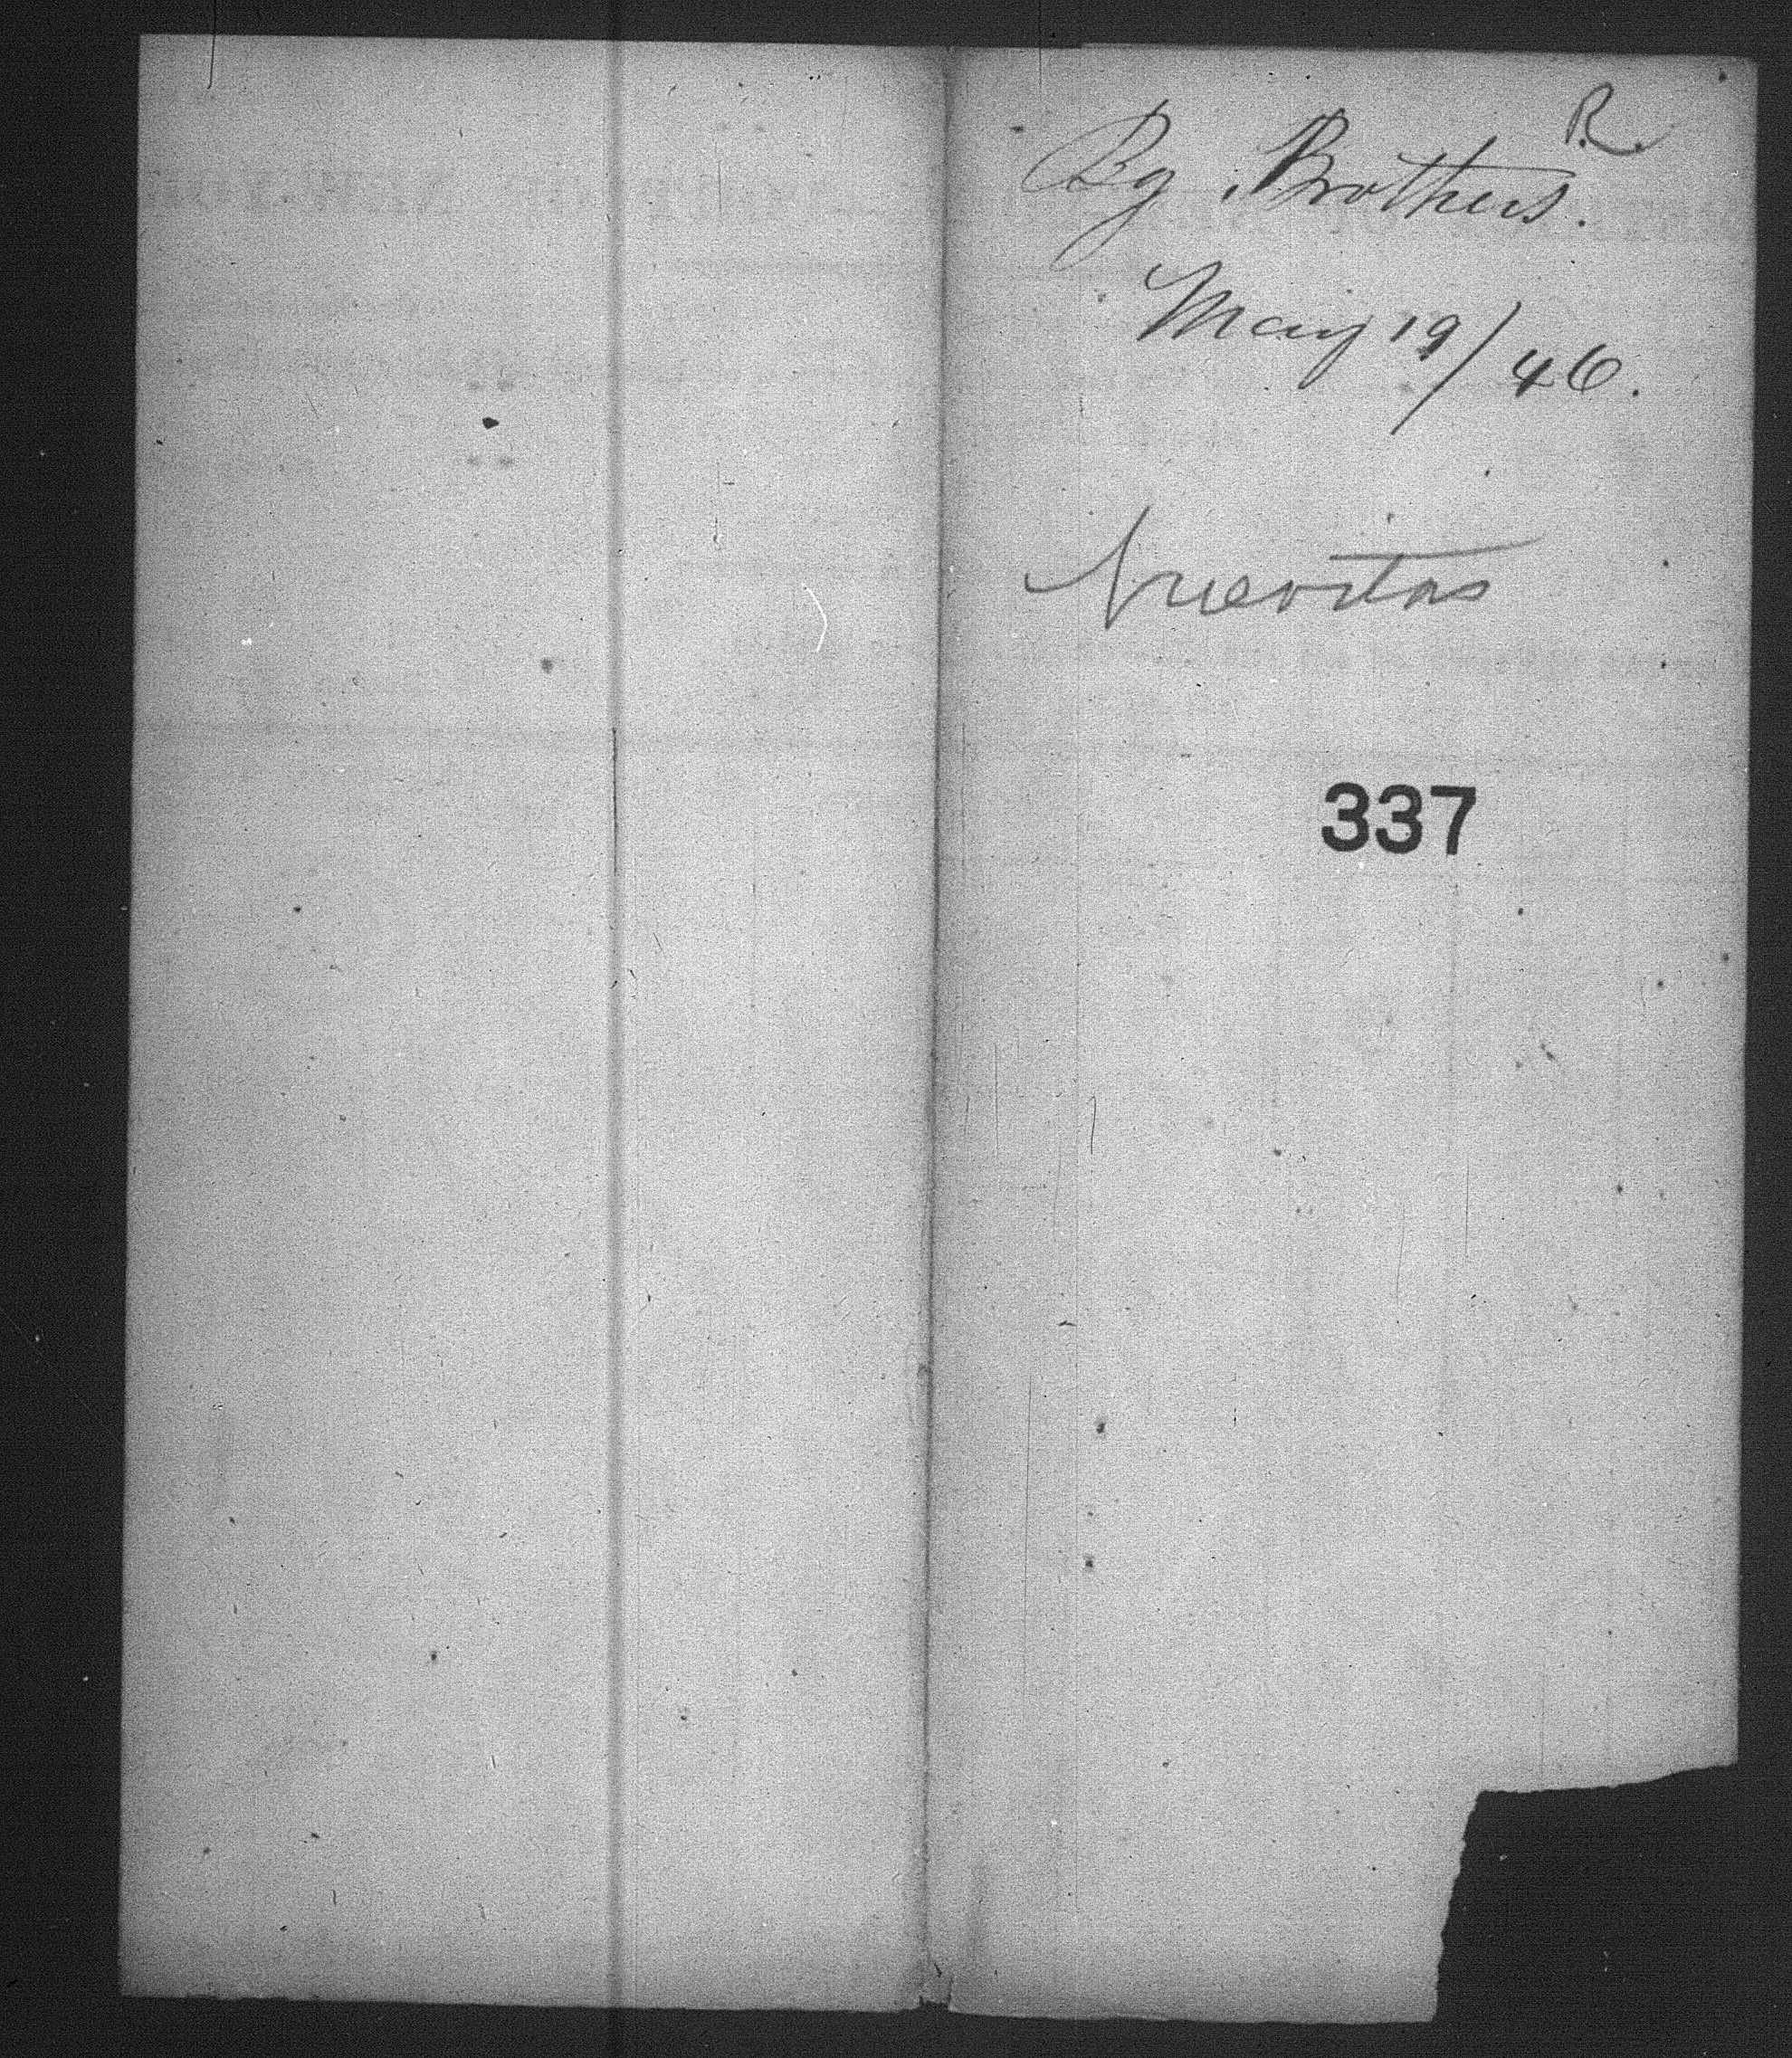 R.
Bg. Brothers.
May 19/46.
Nuevitas
337